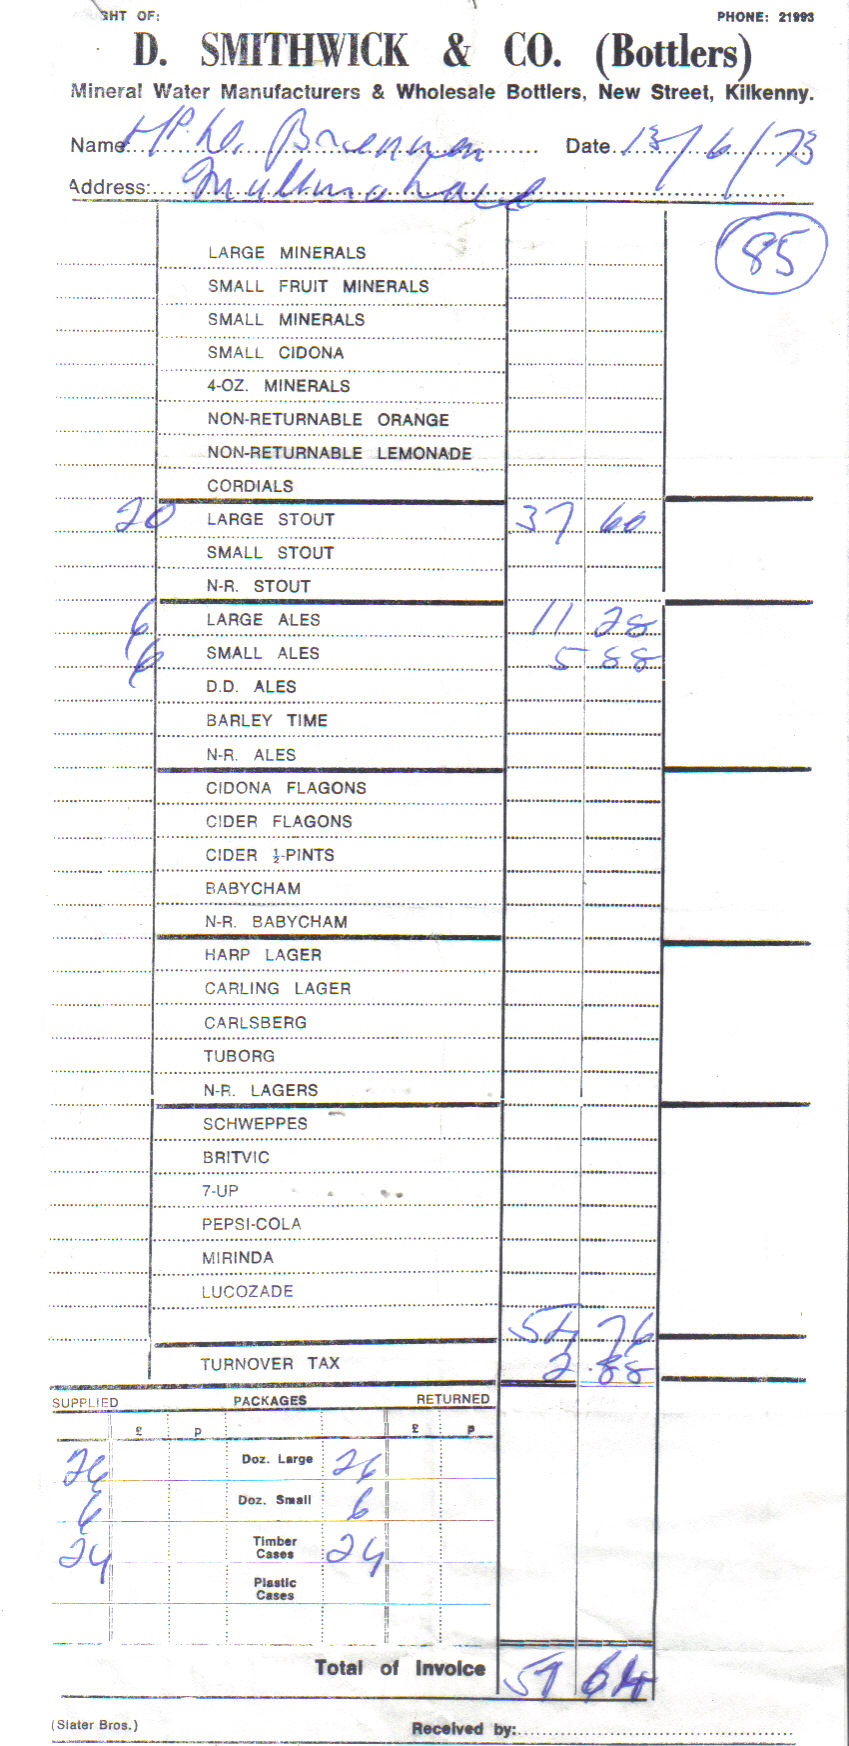 GHT OF: PHONE: 21993
D. SMITHWICK & CO. (Bottlers)
Mineral Water Manufacturers & Wholesale Bottlers, New Street, Kilkenny.
Name: Brennan Date 13/6/73
Address: Mullinahone
85
LARGE MINERALS
SMALL FRUIT MINERALS
SMALL MINERALS
SMALL CIDONA
4-OZ. MINERALS
NON-RETURNABLE ORANGE
NON-RETURNABLE LEMONADE
CORDIALS
20 LARGE STOUT 37 60
SMALL STOUT
N-R. STOUT
6 LARGE ALES 11 28
6 SMALL ALES 5 88
D.D. ALES
BARLEY TIME
N-R. ALES
CIDONA FLAGONS
CIDER FLAGONS
CIDER ½-PINTS
BABYCHAM
N-R. BABYCHAM
HARP LAGER
CARLING LAGER
CARLSBERG
TUBORG
N-R. LAGERS
SCHWEPPES
BRITVIC
7-UP
PEPSI-COLA
MIRINDA
LUCOZADE
54 76
TURNOVER TAX 2.88
SUPPLIED PACKAGES RETURNED
£ p £ p
26 Doz. Large 26
6 Doz. Small 6
24 Timber Cases 24
Plastic Cases
Total of Invoice 57 64
(Slater Bros.) Received by: